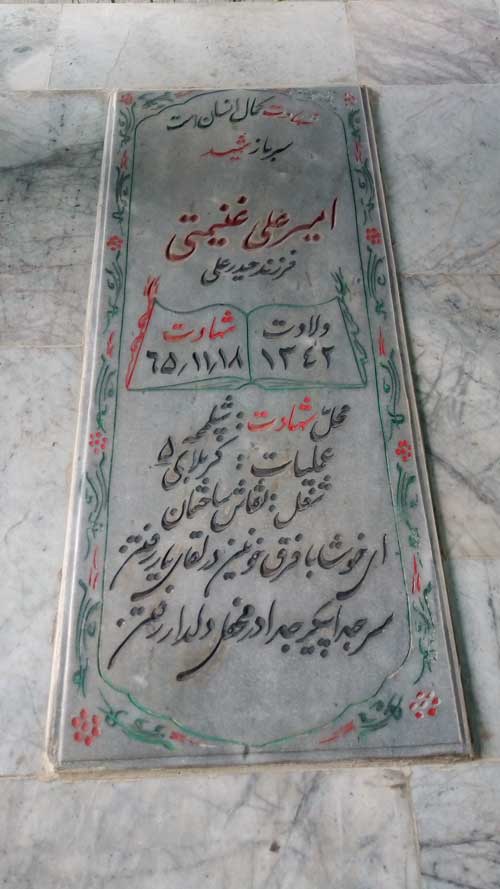 شهادت کمال انسان است
سرباز شهید
امیر علی غنیمتی
فرزند حیدر علی
ولادت
۱۳۴۲
شهادت
۶۵٫۱۱٫۱۸
محل شهادت : شلمچه
عملیات : کربلای ۵
شغل : نقاش ساختمان
ای خوشا با فرق خونین در لقای یار رفتن
سر جدا پیکر جدا در محفل دلدار رفتن